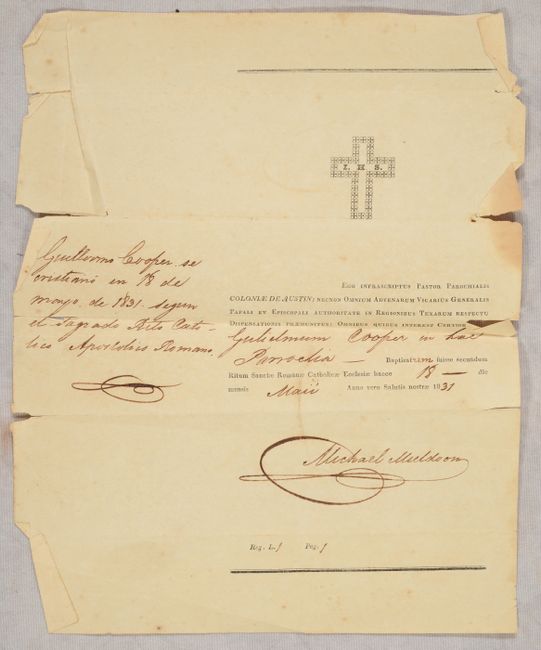 I. H. S.
Guillermo Cooper se
cristianó en 18 de
mayo de 1831. segun
el sagrado Rito Cato-
lico Apostolico Romano.
Ego infrascriptus Pastor Parochialis
COLONIÆ DE AUSTIN: necnon Omnium Advenarum Vicarius Generalis
Papali et Episcopali Authoritate in Regionibus Texarum respectu
Dispensationis præmuniter: Omnibus quibus interest Certior
Gulielmum Cooper in hac
Parrochia — Baptizatum fuisse secundum
Ritum Sanctæ Romanæ Catholicæ Ecclesiæ hacce 18 — die
mensis Maii Anno vero Salutis nostræ 1831
Michael Muldoon
Reg. L. f Pag. f